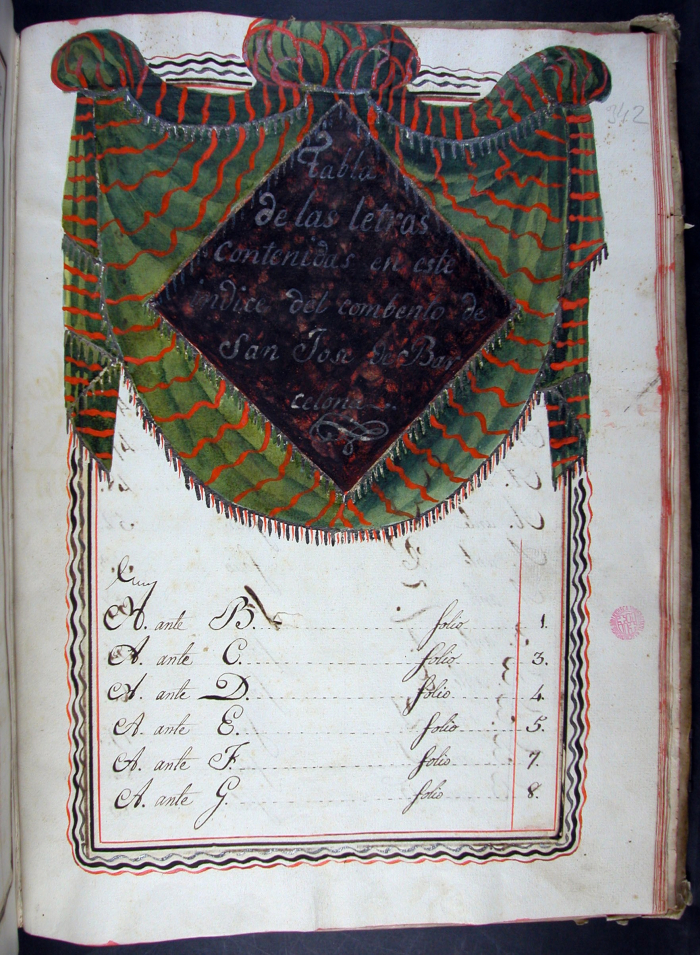 942
Tabla
de las letras
contenidas en este
indice del combento de
San Jose de Bar
celona.
A. ante B. folio 1.
A. ante C. folio 3.
A. ante D. folio 4
A. ante E. folio 5.
A. ante F. folio 7.
A. ante G. folio 8.